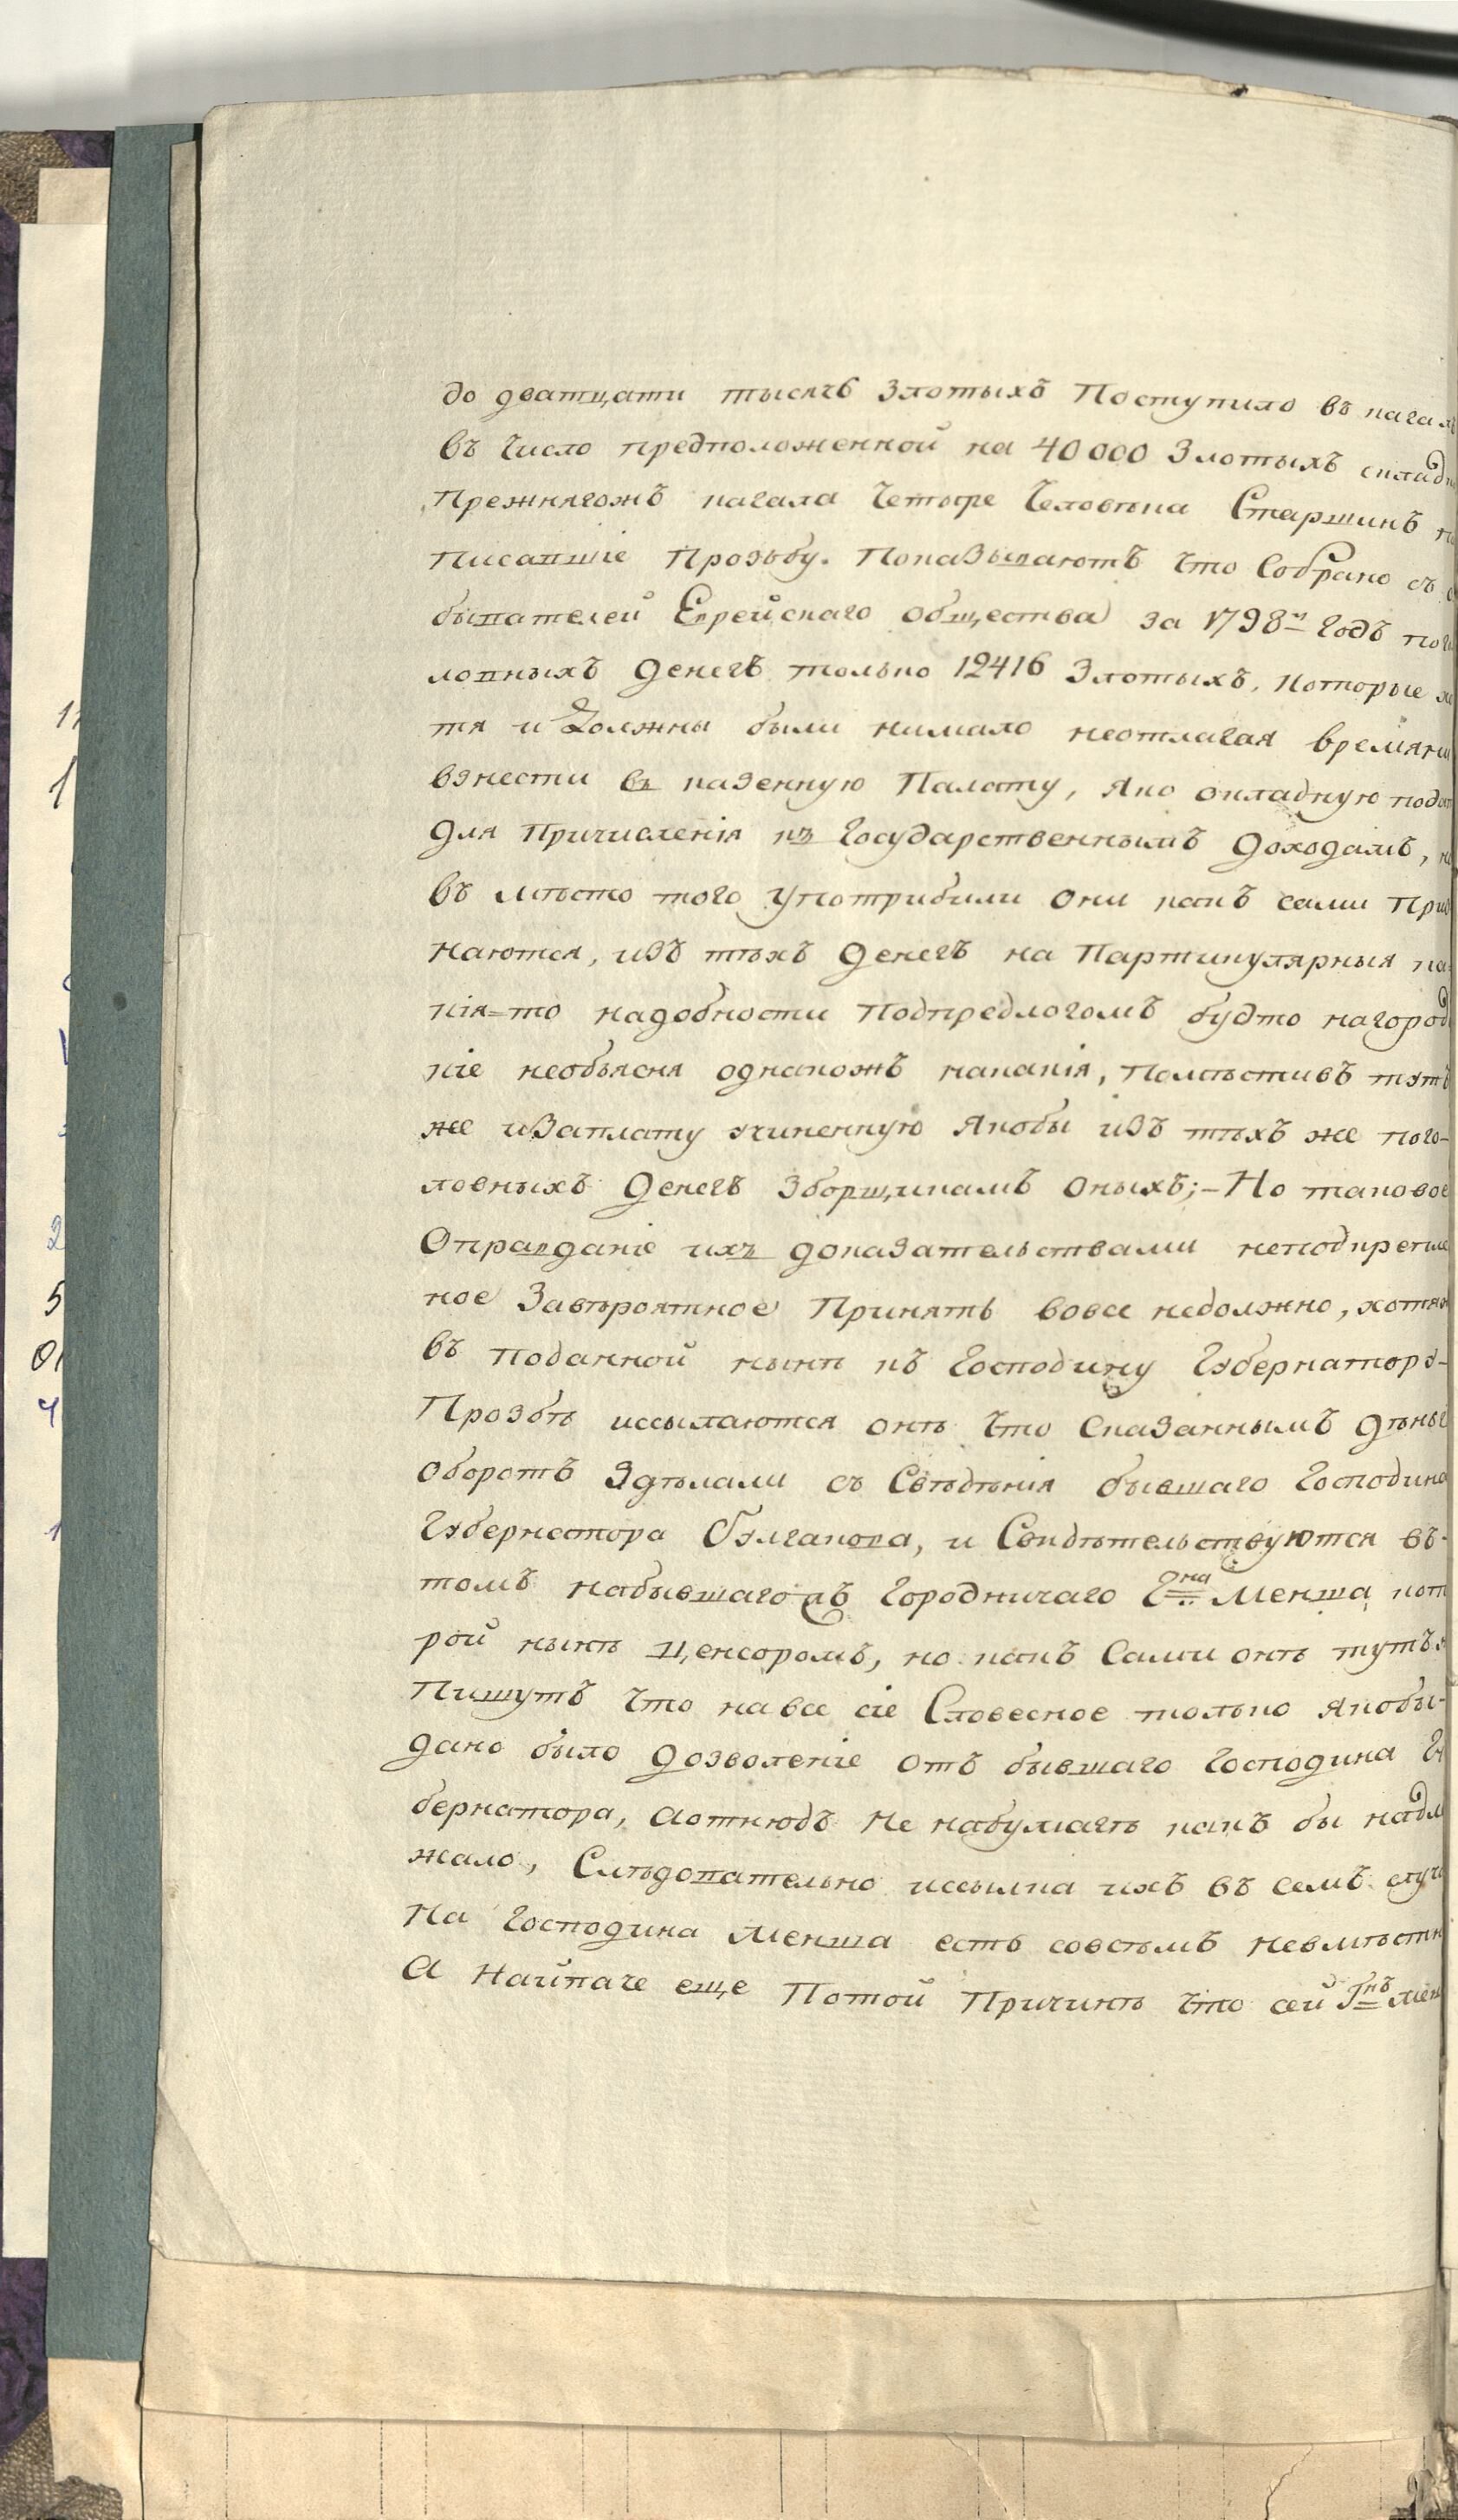 до дватцати тысячь злотыхъ Поступило въ кагал
въ число предположенной на 40000 Злотыхъ складк
Прежнягожъ кагала Четыре Человѣка Старшинъ по
писавшіе Прозьбу. Показываютъ что Собрано съ о
бывателей Еврейскаго общества за 1798й Годъ пого
ловныхъ Денегъ только 12416 Злотыхъ, которые хо
тя и Должны были нимало неотлагая времяни
взнести въ казенную Палату, яко окладную подат
Для Причисленія къ Государственнымъ Доходамъ, но
въ мѣсто того употрибили Они какъ сами Приз
наются, изъ тѣхъ Денегъ на Партикулярныя ка=
кія=то надобности Подпредлогомъ будто нагород
кіе необъясня однакожъ накакія, Помѣстивъ тутъ
же изаплату учиненную Якобы изъ тѣхъ же пого-
ловныхъ Денегъ Зборщикамъ Оныхъ;-Но таковое
Оправданіе ихъ доказательствами неподкрепле
ное Завѣроятное Принять вовсе недолжно, хотяж
въ поданной нынѣ къ Господину Губернатору-
Прозбѣ иссылаются онѣ Что Сказаннымъ Дѣньг
Оборотъ Здѣлали съ Свѣдѣнія бывшаго Господина
Губернатора Булгакова, и Свидѣтельствуются въ-
томъ набывшагожъ Городничаго Гна Менша кот
рой нынѣ Ценсоромъ, но какъ Сами онѣ тутъж
Пишутъ Что навсе сіе Словесное только якобы-
дано было Дозволеніе Отъ бывшаго Господина Гу
бернатора, аотнюдъ Не набумагѣ какъ бы надле
жало, Слѣдовательно иссылка ихъ въ семъ случ
На Господина Менша есть совсѣмъ невмѣстн
А Наипаче еще Потой Причинѣ что сей Гнъ Мен